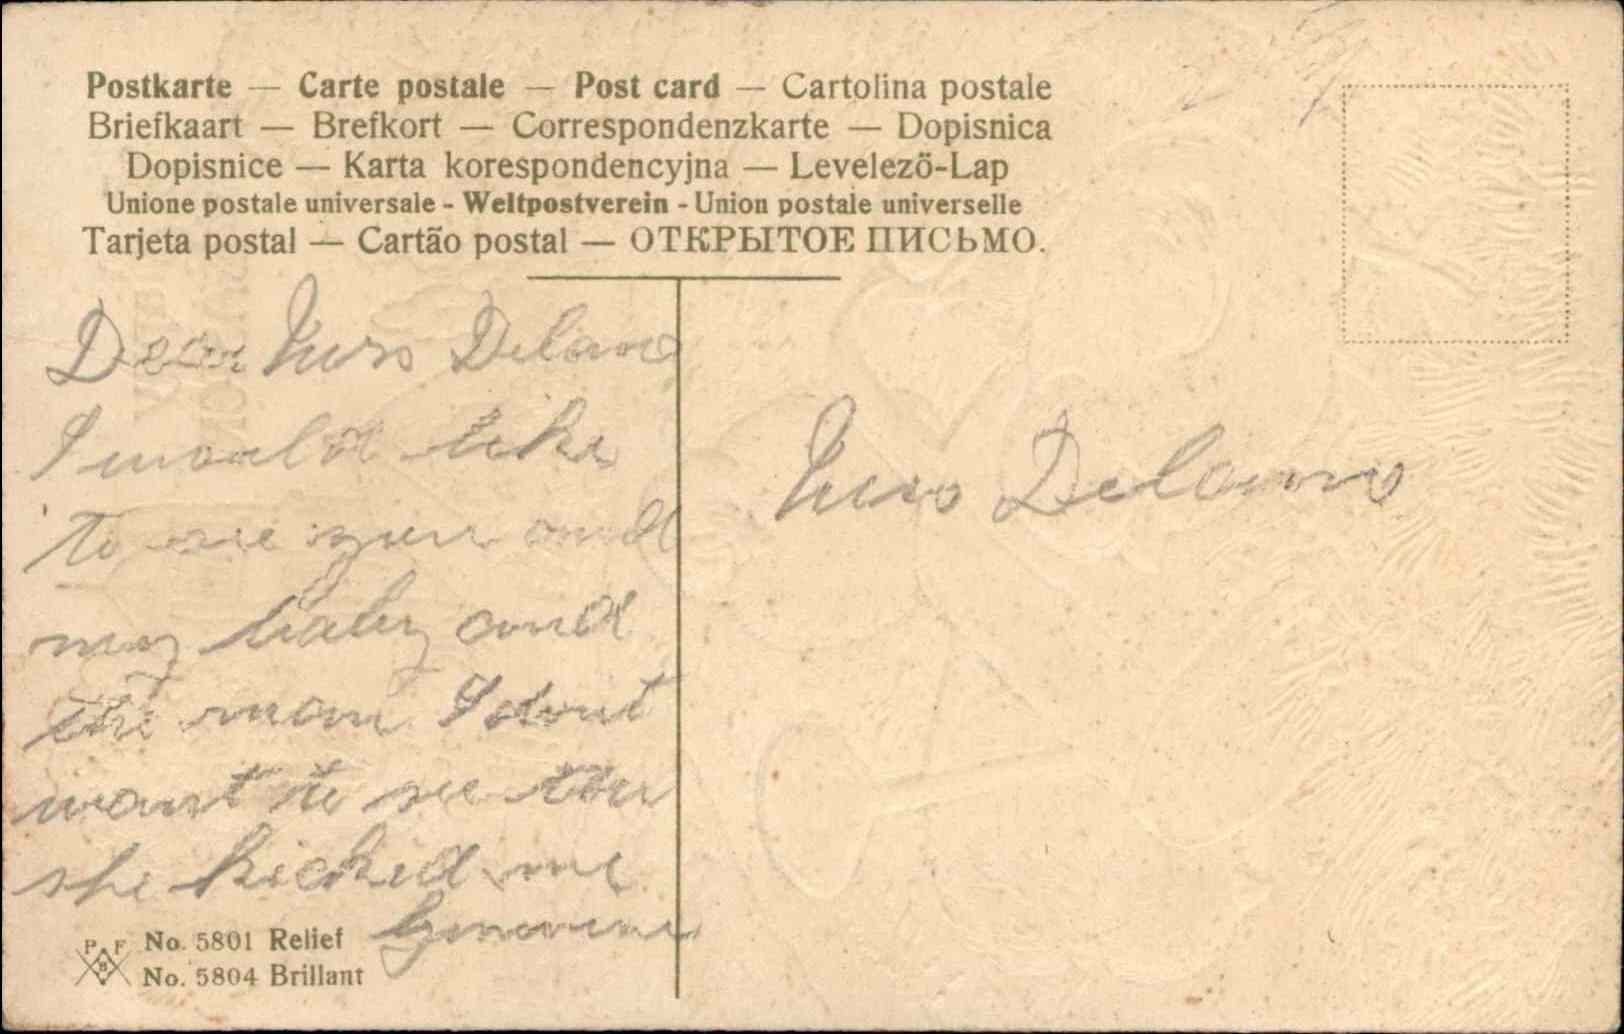 Postkarte — Carte postale — Post card — Cartolina postale
Briefkaart — Brefkort — Correspondenzkarte — Dopisnica
Dopisnice — Karta korespondencyjna — Levelező-Lap
Unione postale universale - Weltpostverein - Union postale universelle
Tarjeta postal — Cartão postal — ОТКРЫТОЕ ПИСЬМО.
Dear Mrs Delano
I would like
to see you and
my baby and
the mare I dont
want to see
she kicked me
Mrs Delano
P F B
No. 5801 Relief
No. 5804 Brillant